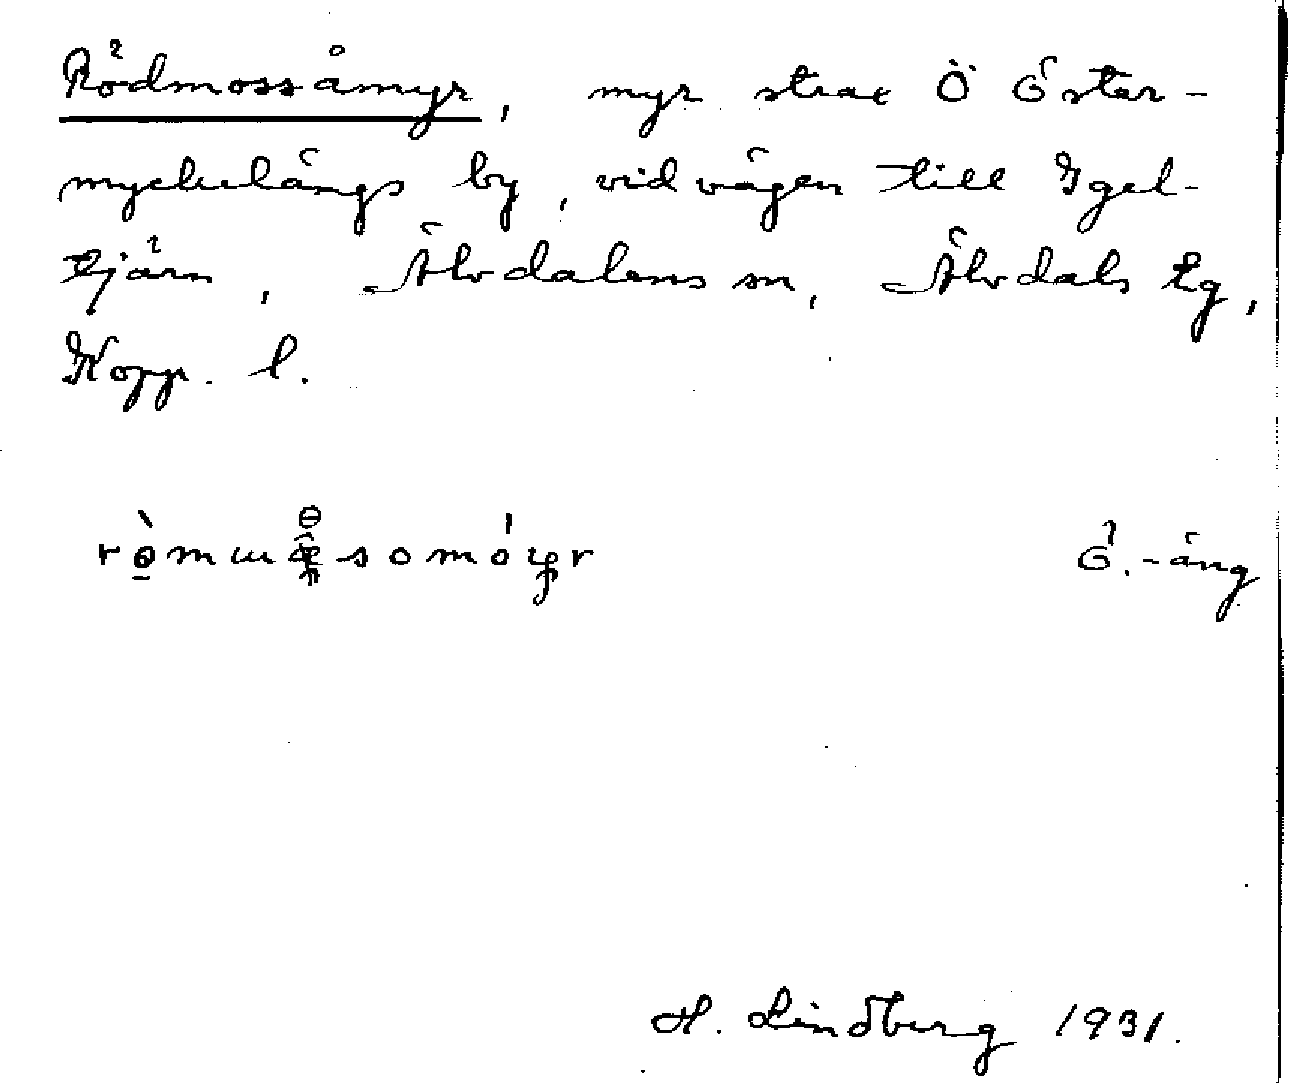 Rödmossåmyr, myr strax Ö Öster-
myckelängs by, vid vägen till Igel-
tjärn, Älvdalens sn, Älvdals tg,
Kopp. l.
Ö.-äng
H. Lindberg 1931.